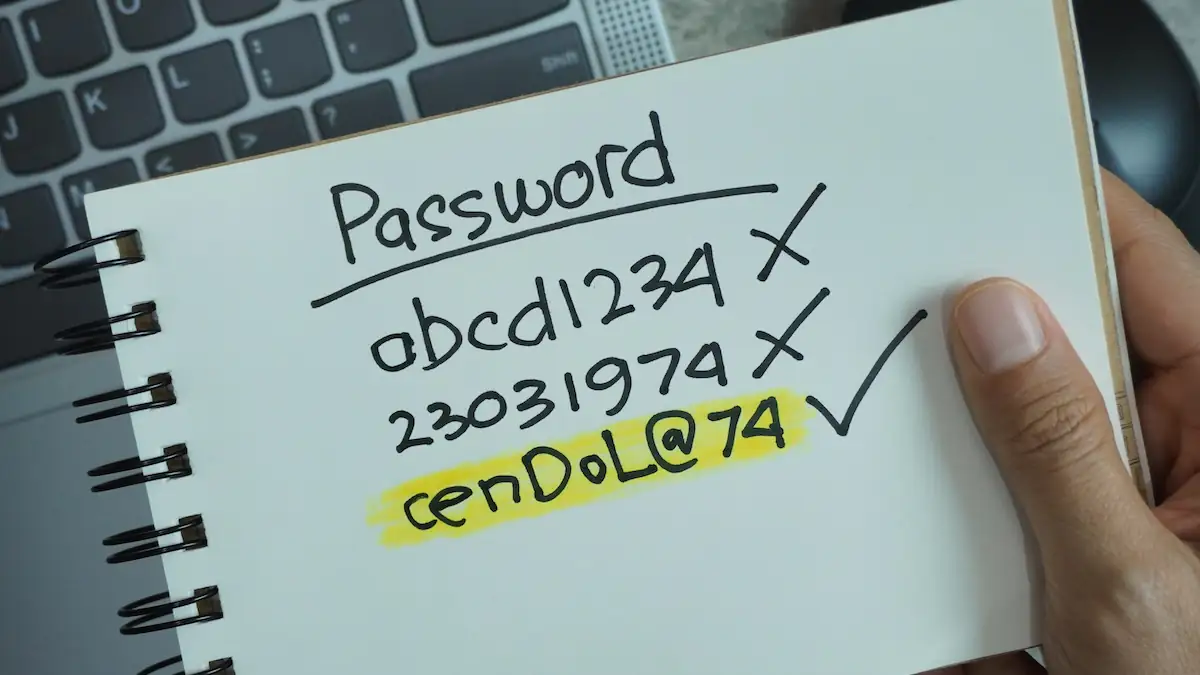 O
I
L
: ;
" '
Shift
J
K
< 
>
?
N
M
Password
abcd1234 X
23031974 X
cenDoL@74 ✓